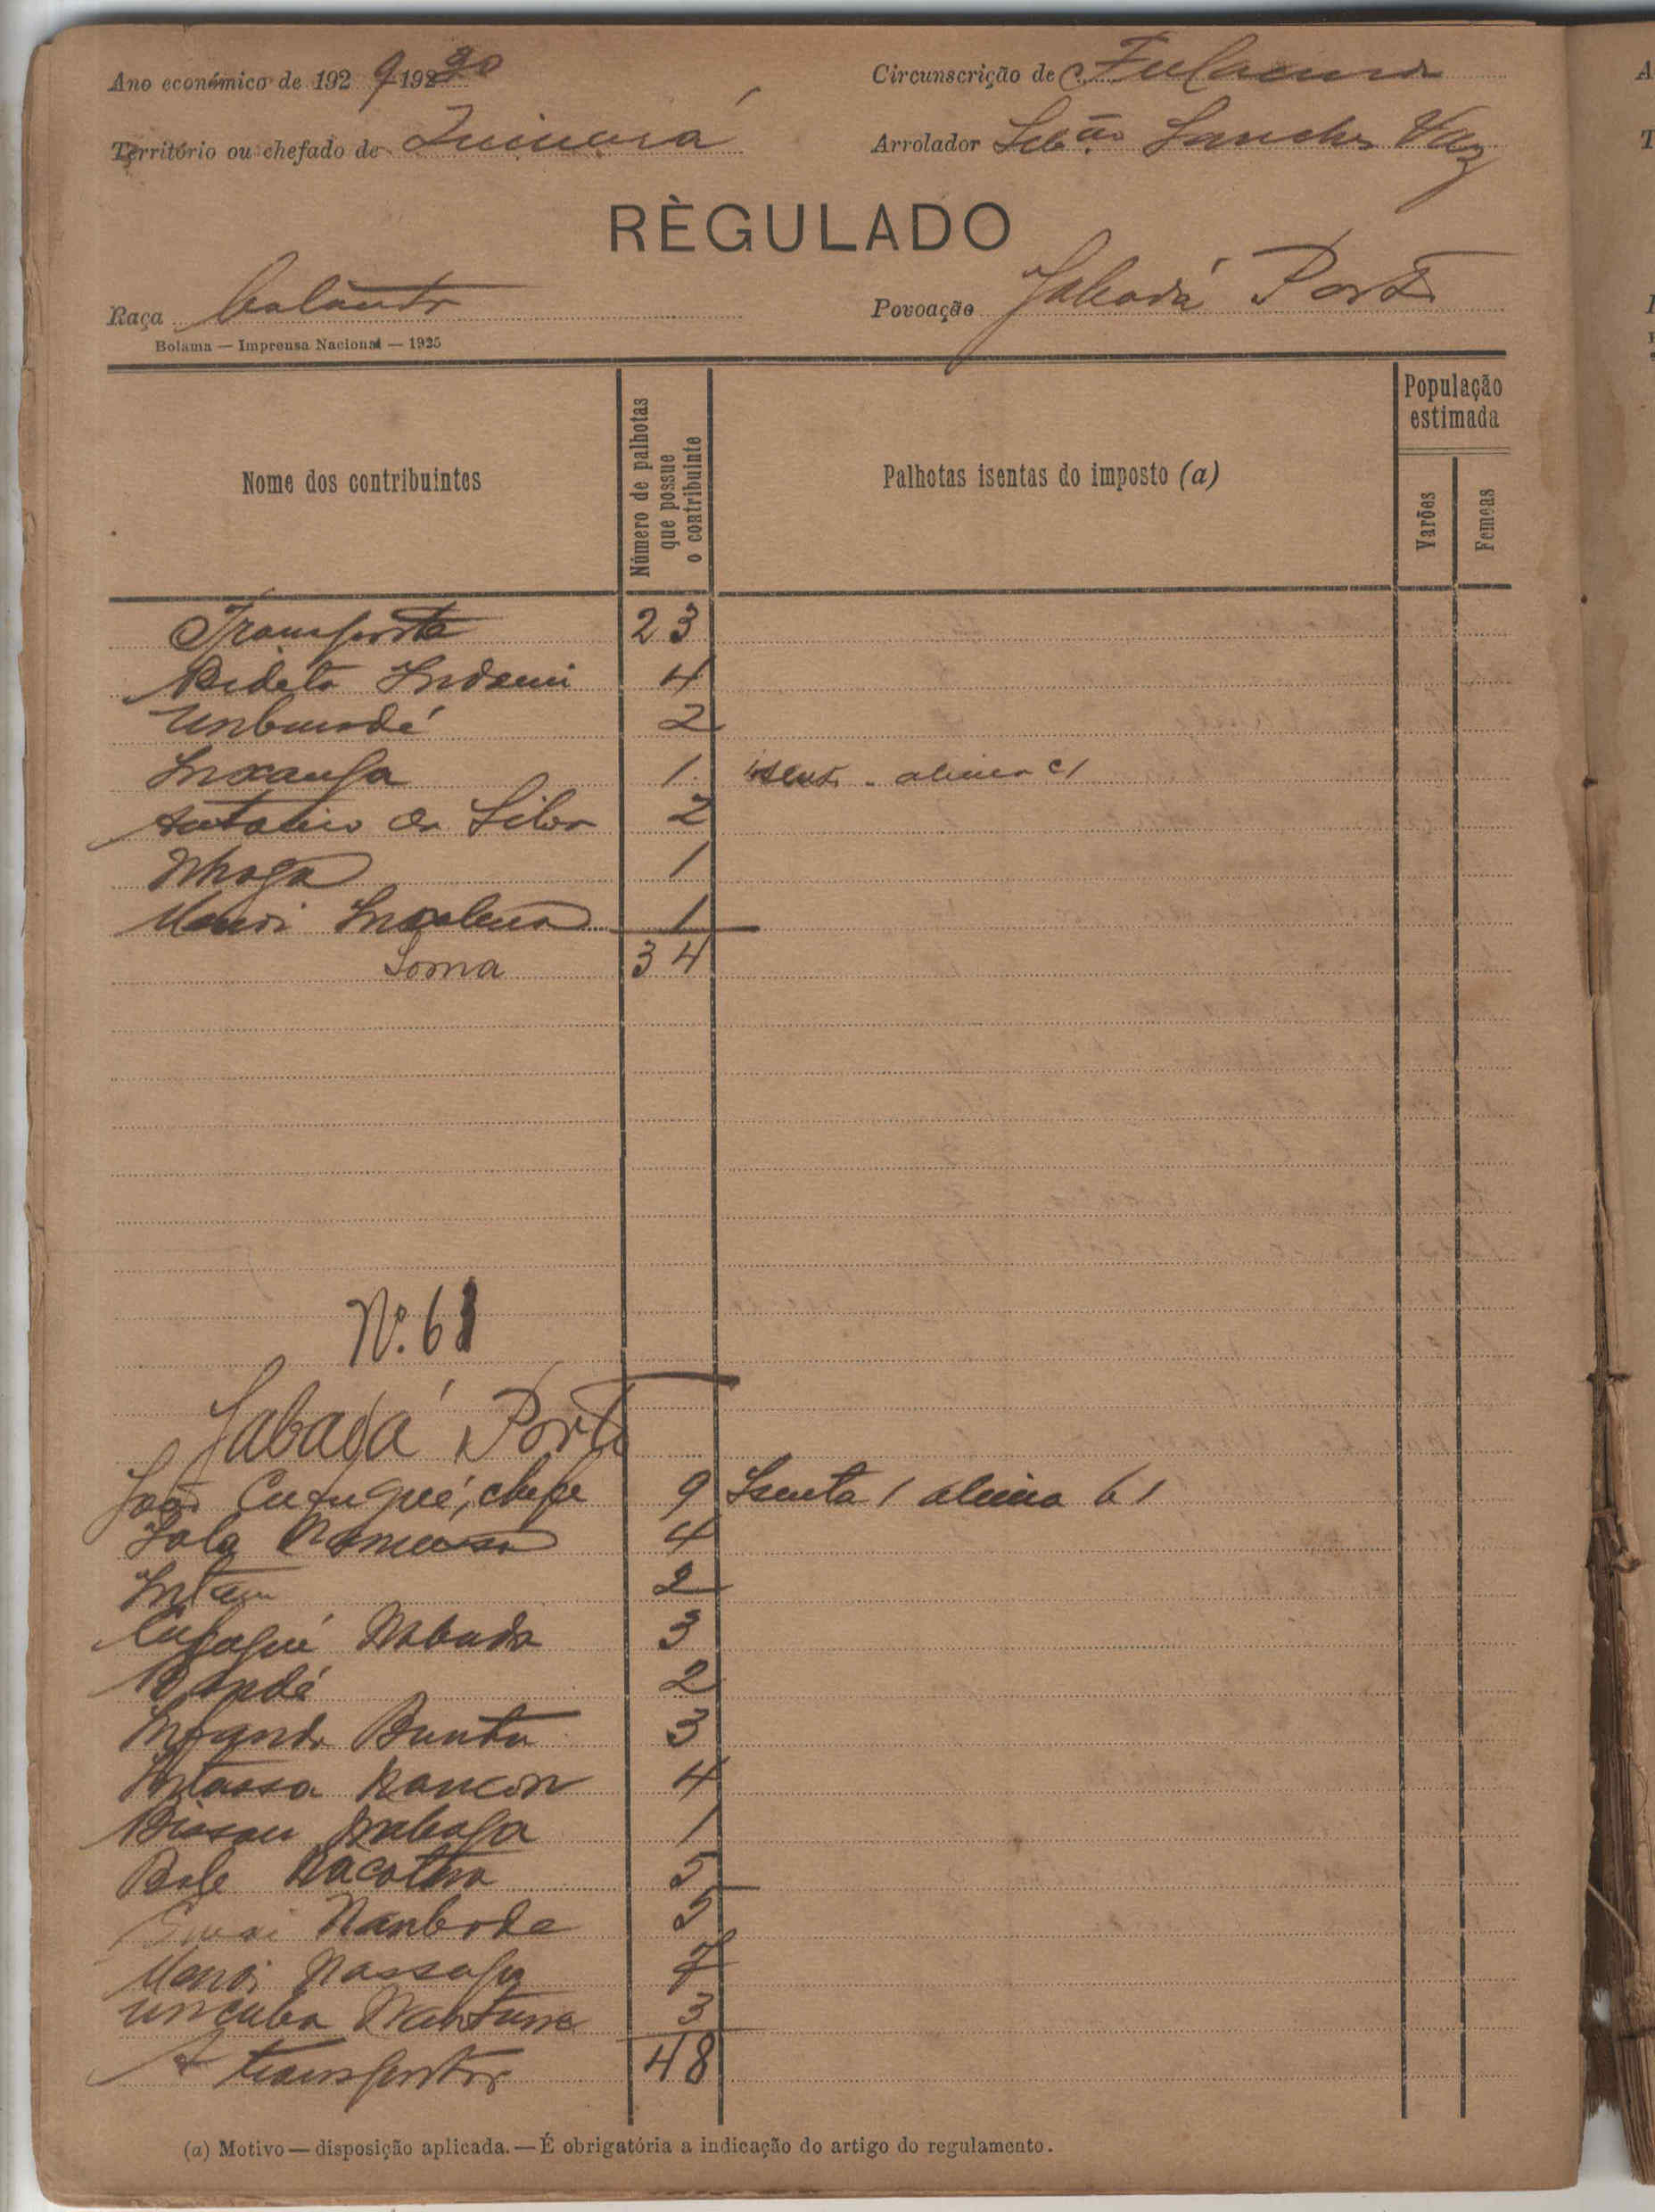 Ano económico de 192 9-1930 Circunscrição de Fulacunda
Território ou chefado de Quinará Arrolador Seb.ão Sanches Vaz
RÈGULADO
Raça balanta Povoação Jabadá Porto
Bolama — Imprensa Nacional — 1925
Nome dos contribuintes Número de palhotas que possue o contribuinte Palhotas isentas do imposto (a) População estimada
Varões Femeas
Transporte 23
Bideta 4
Unbundé 2
Inxanfa 1 isent. - alinea c)
Antonio da Silva 2
Nhaga 1
Mandi 1
Soma 34
Nº. 61
Jabadá Porto
João Cufuguê, chefe 9 Isenta 1 alinea b)
Iala 4
Intam 2
Nabuda 3
Bondé 2
Infanda Buntu 3
Intassa Nancon 4
Biosau 1
Bole Nacatna 5
Nanbode 5
Mandi Nassafu 7
Uncuba Nantuna 3
A transportar 48
(a) Motivo — disposição aplicada. — É obrigatória a indicação do artigo do regulamento.